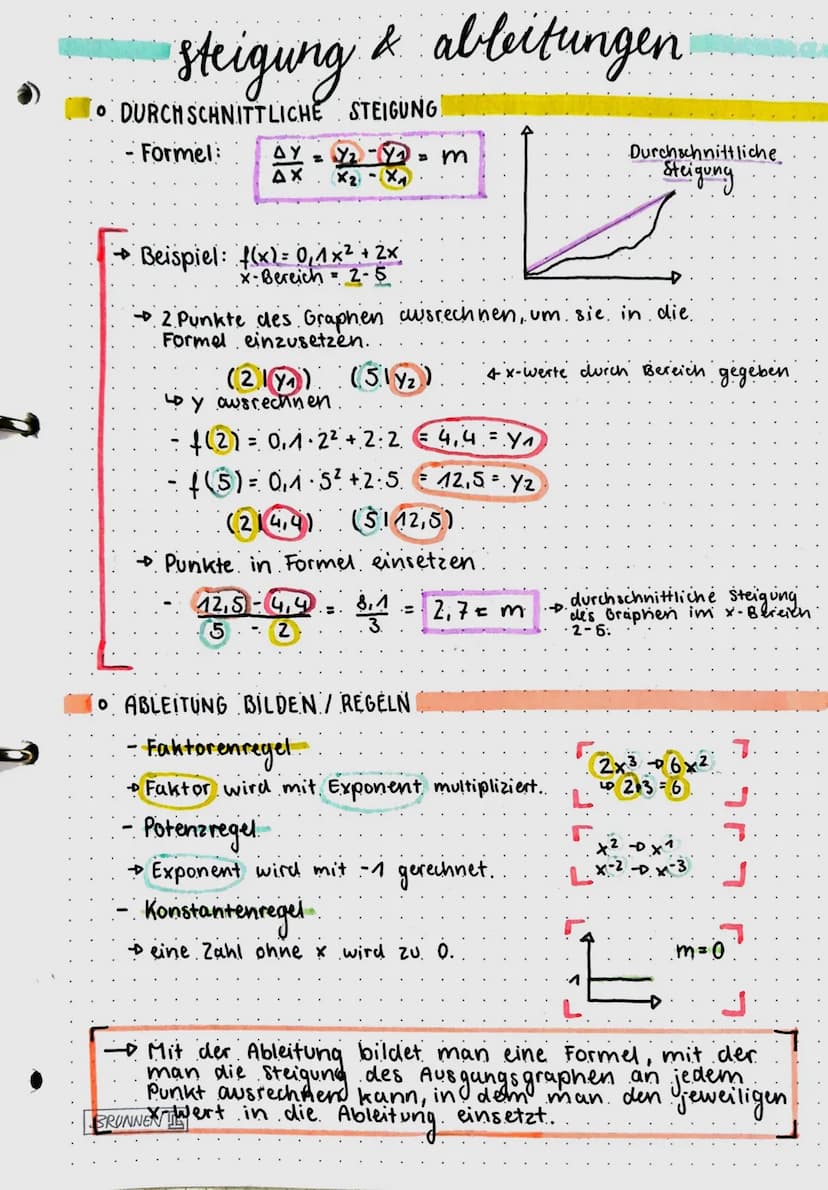 steigung & ableitungen
DURCHSCHNITTLICHE STEIGUNG
- Formel: ΔY/ΔX = Y2 - Y1 / X2 - X1 = m
Durchschnittliche
Steigung
→ Beispiel: f(x) = 0,1x² + 2x
x-Bereich = 2-5
→ 2 Punkte des Graphen ausrechnen, um sie in die
Formel einzusetzen.
(2|Y1) (5|Y2) ← x-Werte durch Bereich gegeben
↳ y ausrechnen
- f(2) = 0,1 · 2² + 2·2 = 4,4 = Y1
- f(5) = 0,1 · 5² + 2·5 = 12,5 = Y2
(2|4,4) (5|12,5)
→ Punkte in Formel einsetzen
- 12,5 - 4,4 / 5 - 2 = 8,1/3 = 2,7 = m → durchschnittliche Steigung
des Graphen im x-Bereich
2-5.
ABLEITUNG BILDEN / REGELN
- Faktorenregel
2x³ → 6x²
→ Faktor wird mit Exponent multipliziert.
↳ 2·3 = 6
- Potenzregel
x² → x¹
→ Exponent wird mit -1 gerechnet.
x⁻² → x⁻³
- Konstantenregel
→ eine Zahl ohne x wird zu 0.
m = 0
1
→ Mit der Ableitung bildet man eine Formel, mit der
man die Steigung des Ausgangsgraphen an jedem
Punkt ausrechnend kann, in dem man den jeweiligen
x-Wert in die Ableitung einsetzt.
BRUNNEN